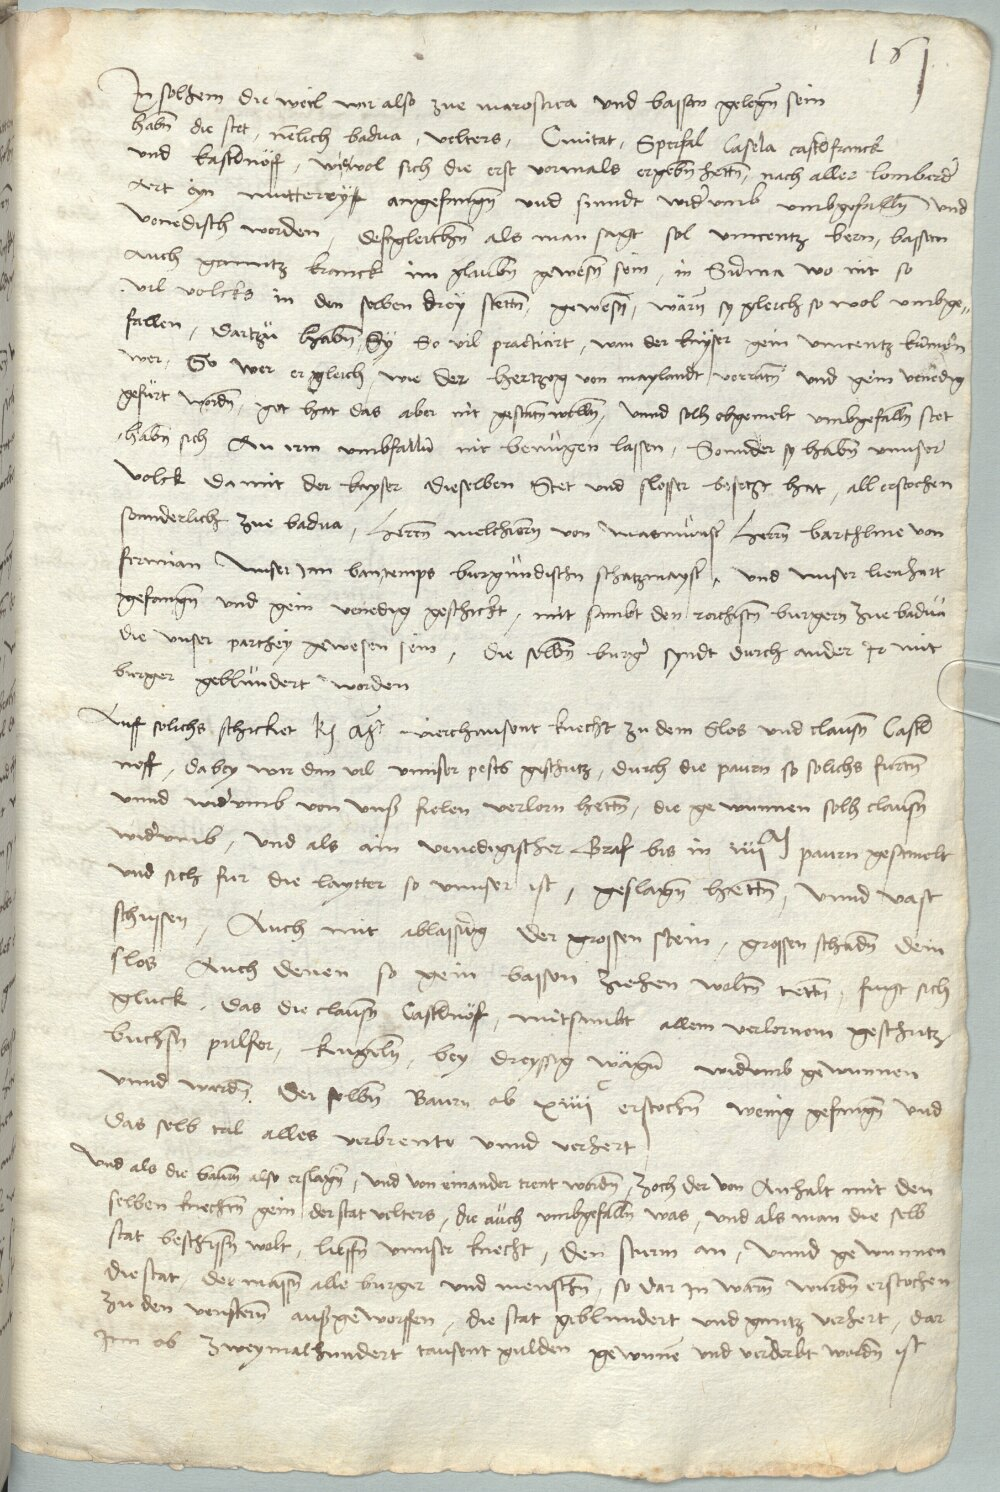 161
In solhem die weil wir also zue marostica und bassan gelegn sein
habn die stet, nêlich badua, velters, Civitat, Sperfal Casela castlfranck
und kastlnöff, wiewol sich die erst vormals ergebn hettn, nach aller lomberder
art eyn mutterey angefangn und sinndt widerumb umbgefalln und
venedisch worden, desgleichn als man sagt sol vincentz bern, bassan
Auch gannntz kranck im glaubn gewesn sein, in Suma wo nit so
vil volcks in den selben drey stettn, gewesn, wärn sy gleich so wol umbge-
fallen, Dartzu habn Sy So vil practicirt, wan der kayser gein vincentz kumen
wer, So wer er gleich, wie der hertzog von maylandt verratn und gein venedig
gefürt wordn, got hat das aber nit gestatn wolln, unnd solh obgemelt umbgefalln stet
habn sich An irm umbfalln nit benuegen lassen, Sonnder sy habn unnser
volck damit der kayser dieselben Stet und slosser besetzt hat, all erstochen
sonnderlich zue badua, herrn melchiorn von Masmünster herrn barthlme von
firmian Unser Jan bontemps burgundischn schatzmayster, und unser lienhart
gefangn und gein venedig geschickt, mit sambt den reichstn burgern zue badua
die unser parthey gewesen sein, die selbn burger syndt durch ander Ir mit
burger geblundert worden
Auff solichs schicket kay Mt vierthausent knecht zu dem Slos und clausn Castl
noff, dabey wir dan vil unnser pests geschutz, durch die paurn so solichs furtn
unnd widerumb von unß fielen verlorn hettn, die gewunnen solh clausn
widerumb, Und als ain venedigischer Graf bis in viiiM paurn gesamelt
und sich fur die laytter so unnser ist, geslagn hettn, unnd vast
schussen, Auch mit ablassung der grossen stein, grossen schadn dem
slos Auch denen so gein bassan ziehen woltn tettn, fugt sich
gluck, das die clausn Castlnöff, mitsambt allem verlornem geschutz
buchsn pulfer, kugeln, bey dreyssig wägn widerumb gewunnen
unnd wardn. Der selbn Baurn ob xviiiC erstochn wenig gefangn und
das selb tal alles verbrennt unnd verhert
Und als die baurn also erslagn, und von einander trent wordn, zoch der von Anhalt mit den
selben knechtn gein der stat velters, die auch umbgefalln was, und als man die selb
stat beschissn wolt, lieffn unnser knecht, den sturm an, unnd gewunnen
die stat, der massn alle burger und menschn, so dar In warn wurdn erstochen
zu den venstern außgeworffen, die stat geblundert und gantz verhert, dar
Inn ob zweymalhundert tausent gulden gewunnen und verderbt wordn ist